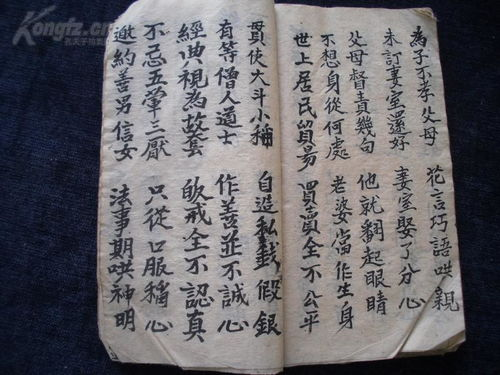 Kongfz.com
為子不孝父母 花言巧語哄親
未訂妻室還好 妻室娶了分心
父母督責幾句 他就翻起眼睛
不想身從何處 老婆當作生身
世上居民貿易 買賣全不公平
貫使大斗小稱 自造私戥假銀
有等僧人道士 作善並不誠心
經典視為故套 皈戒全不認真
不忌五葷三厭 只從口服稱心
邀約善男信女 法事期哄神明